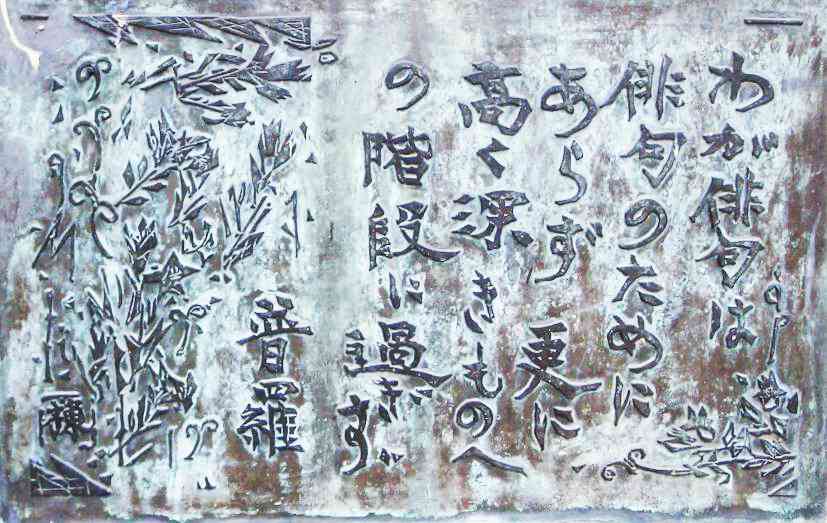 わが俳句は
俳句のために
あらず 更に
高く深きものへ
の階段に過ぎ
ず
普羅